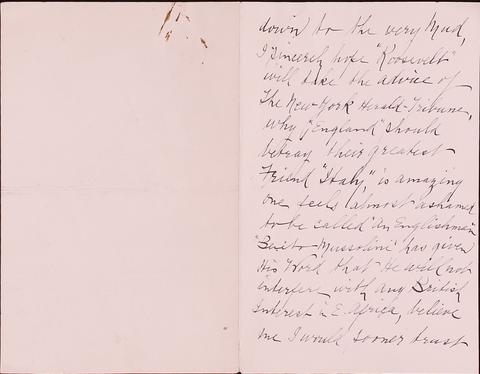 down to the very Mud,
I sincerely hope "Roosevelt"
will take the advice of
The New York Herald-Tribune,
why "England" should
betray their greatest
Friend "Italy," is amazing
one feels almost ashamed
to be called "An Englishman"
"Benito Mussolini" has given
His Word that He will not
interfere with any British
Interest in E. Africa, believe
me I would sooner trust